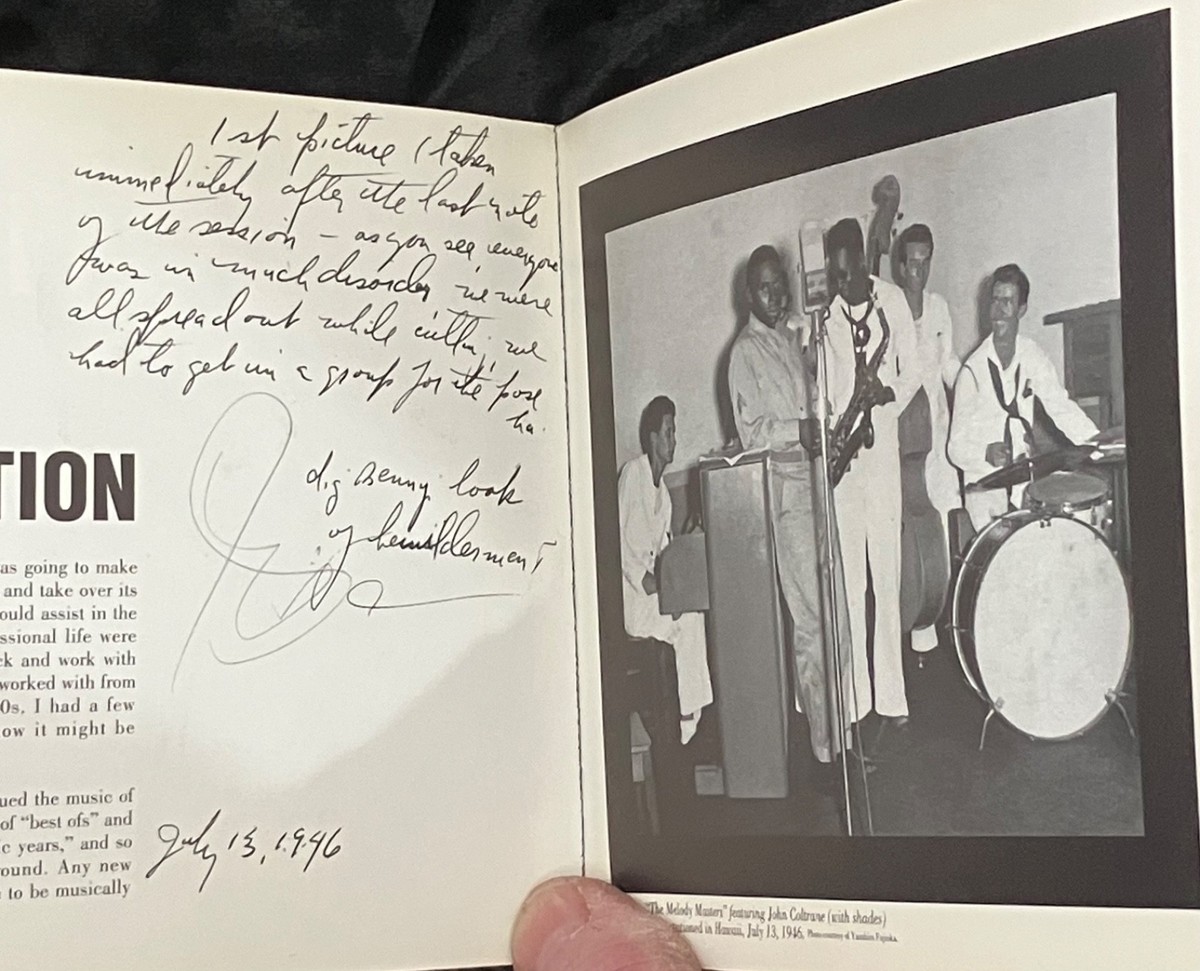 1st picture (taken
immediately after the last note
of the session – as you see everyone
was in much disorder, we were
all spread out while cuttin', we
had to get in a group for the pose
ha.
dig Benny look
of bewilderment
TION
as going to make
and take over its
ould assist in the
ssional life were
ck and work with
worked with from
0s. I had a few
ow it might be
ued the music of
of “best ofs” and
c years,” and so
ound. Any new
to be musically
July 13, 1946
"The Melody Masters" featuring John Coltrane (with shades)
tationed in Hawaii, July 13, 1946. Photo courtesy of Yasuhiro Fujioka.